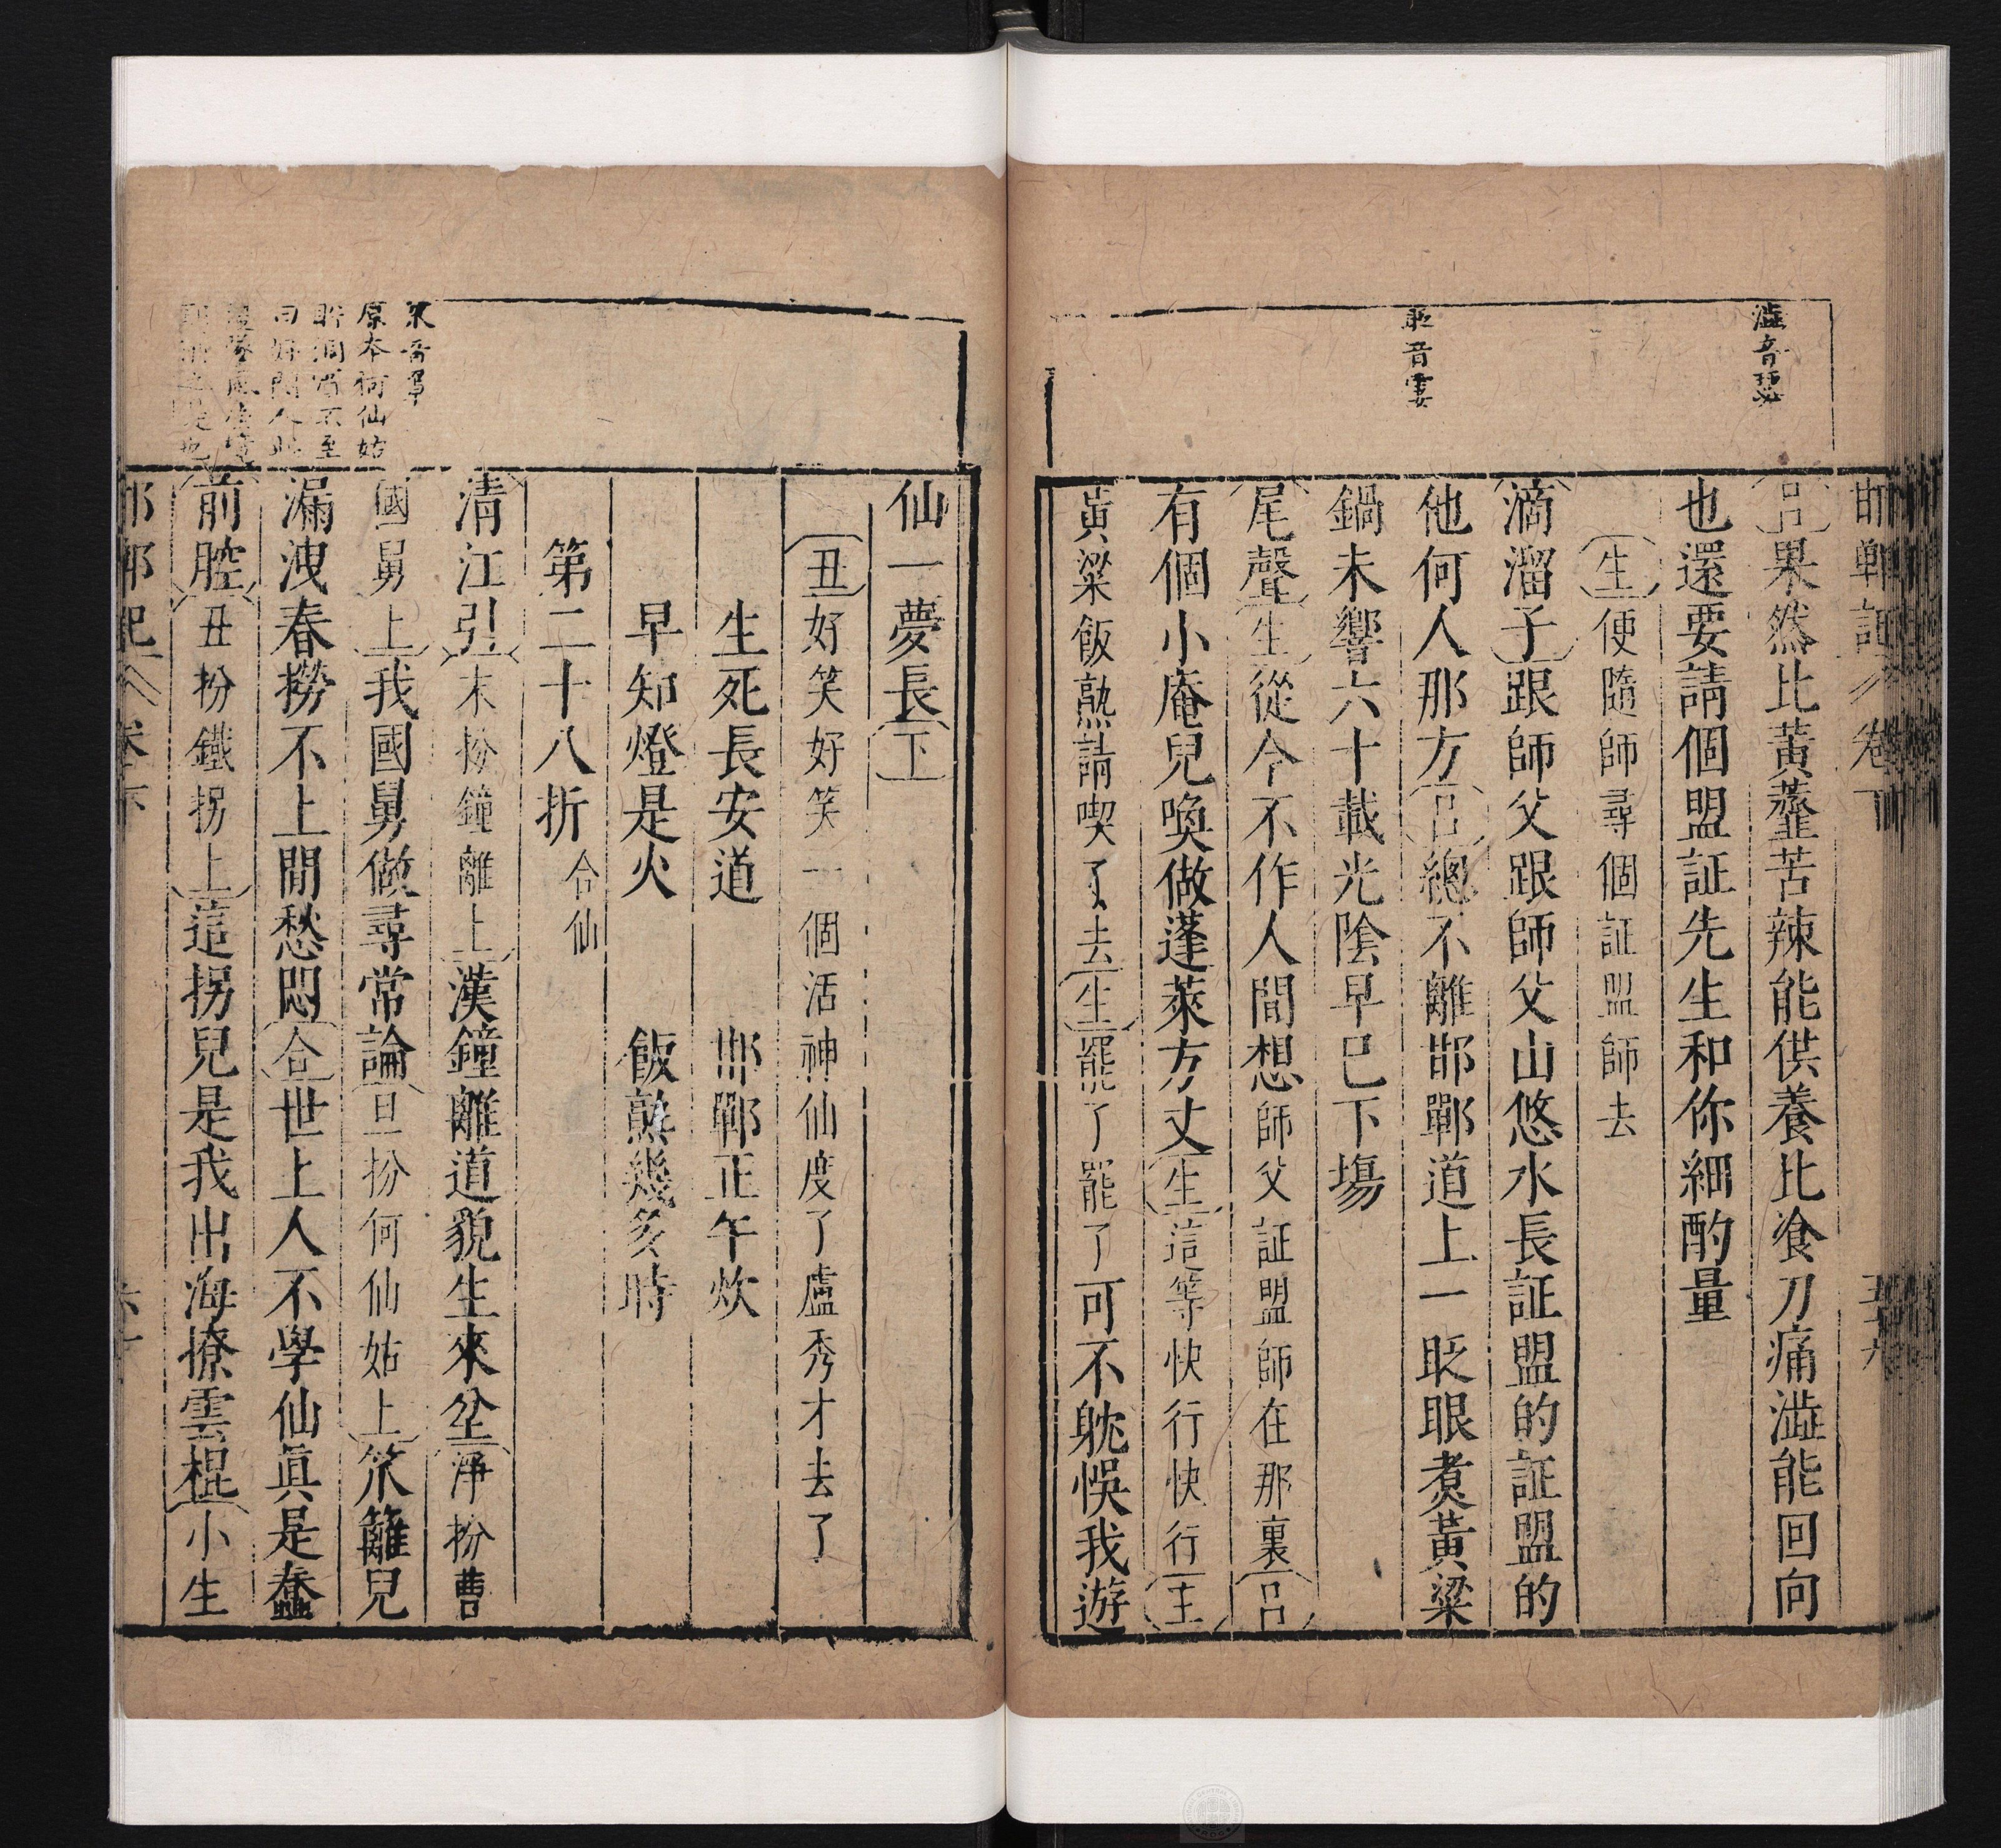 邯鄲記 卷下
澁音瑟
㫁音霎
呂果然比黃虀苦辣能供養比飡刀痛澁能回向
也還要請個盟証先生和你細酌量
生便隨師尋個証盟師去
滴溜子跟師父跟師父山悠水長証盟的証盟的
他何人那方呂總不離邯鄲道上一眨眼煑黃粱
鍋未響六十載光陰早巳下場
尾聲生從今不作人間想師父証盟師在那裏呂
有個小庵兒喚做蓬萊方丈生這等快行快行王
黃粱飯熟請喫了去生罷了罷了可不躭悞我遊
仙一夢長下
丑好笑好笑一個活神仙度了盧秀才去了
生死長安道 邯鄲正午炊
早知燈是火 飯熟幾多時
第二十八折 合仙
清江引末扮鐘離上漢鐘離道貌生來坌淨扮曹
國舅上我國舅做尋常論旦扮何仙姑上笊籬兒
漏洩春撈不上閒愁悶合世上人不學仙眞是蠢
前腔丑扮鐵拐上這拐兒是我出海撩雲棍小生
原本何仙姑
邯鄲記 卷下